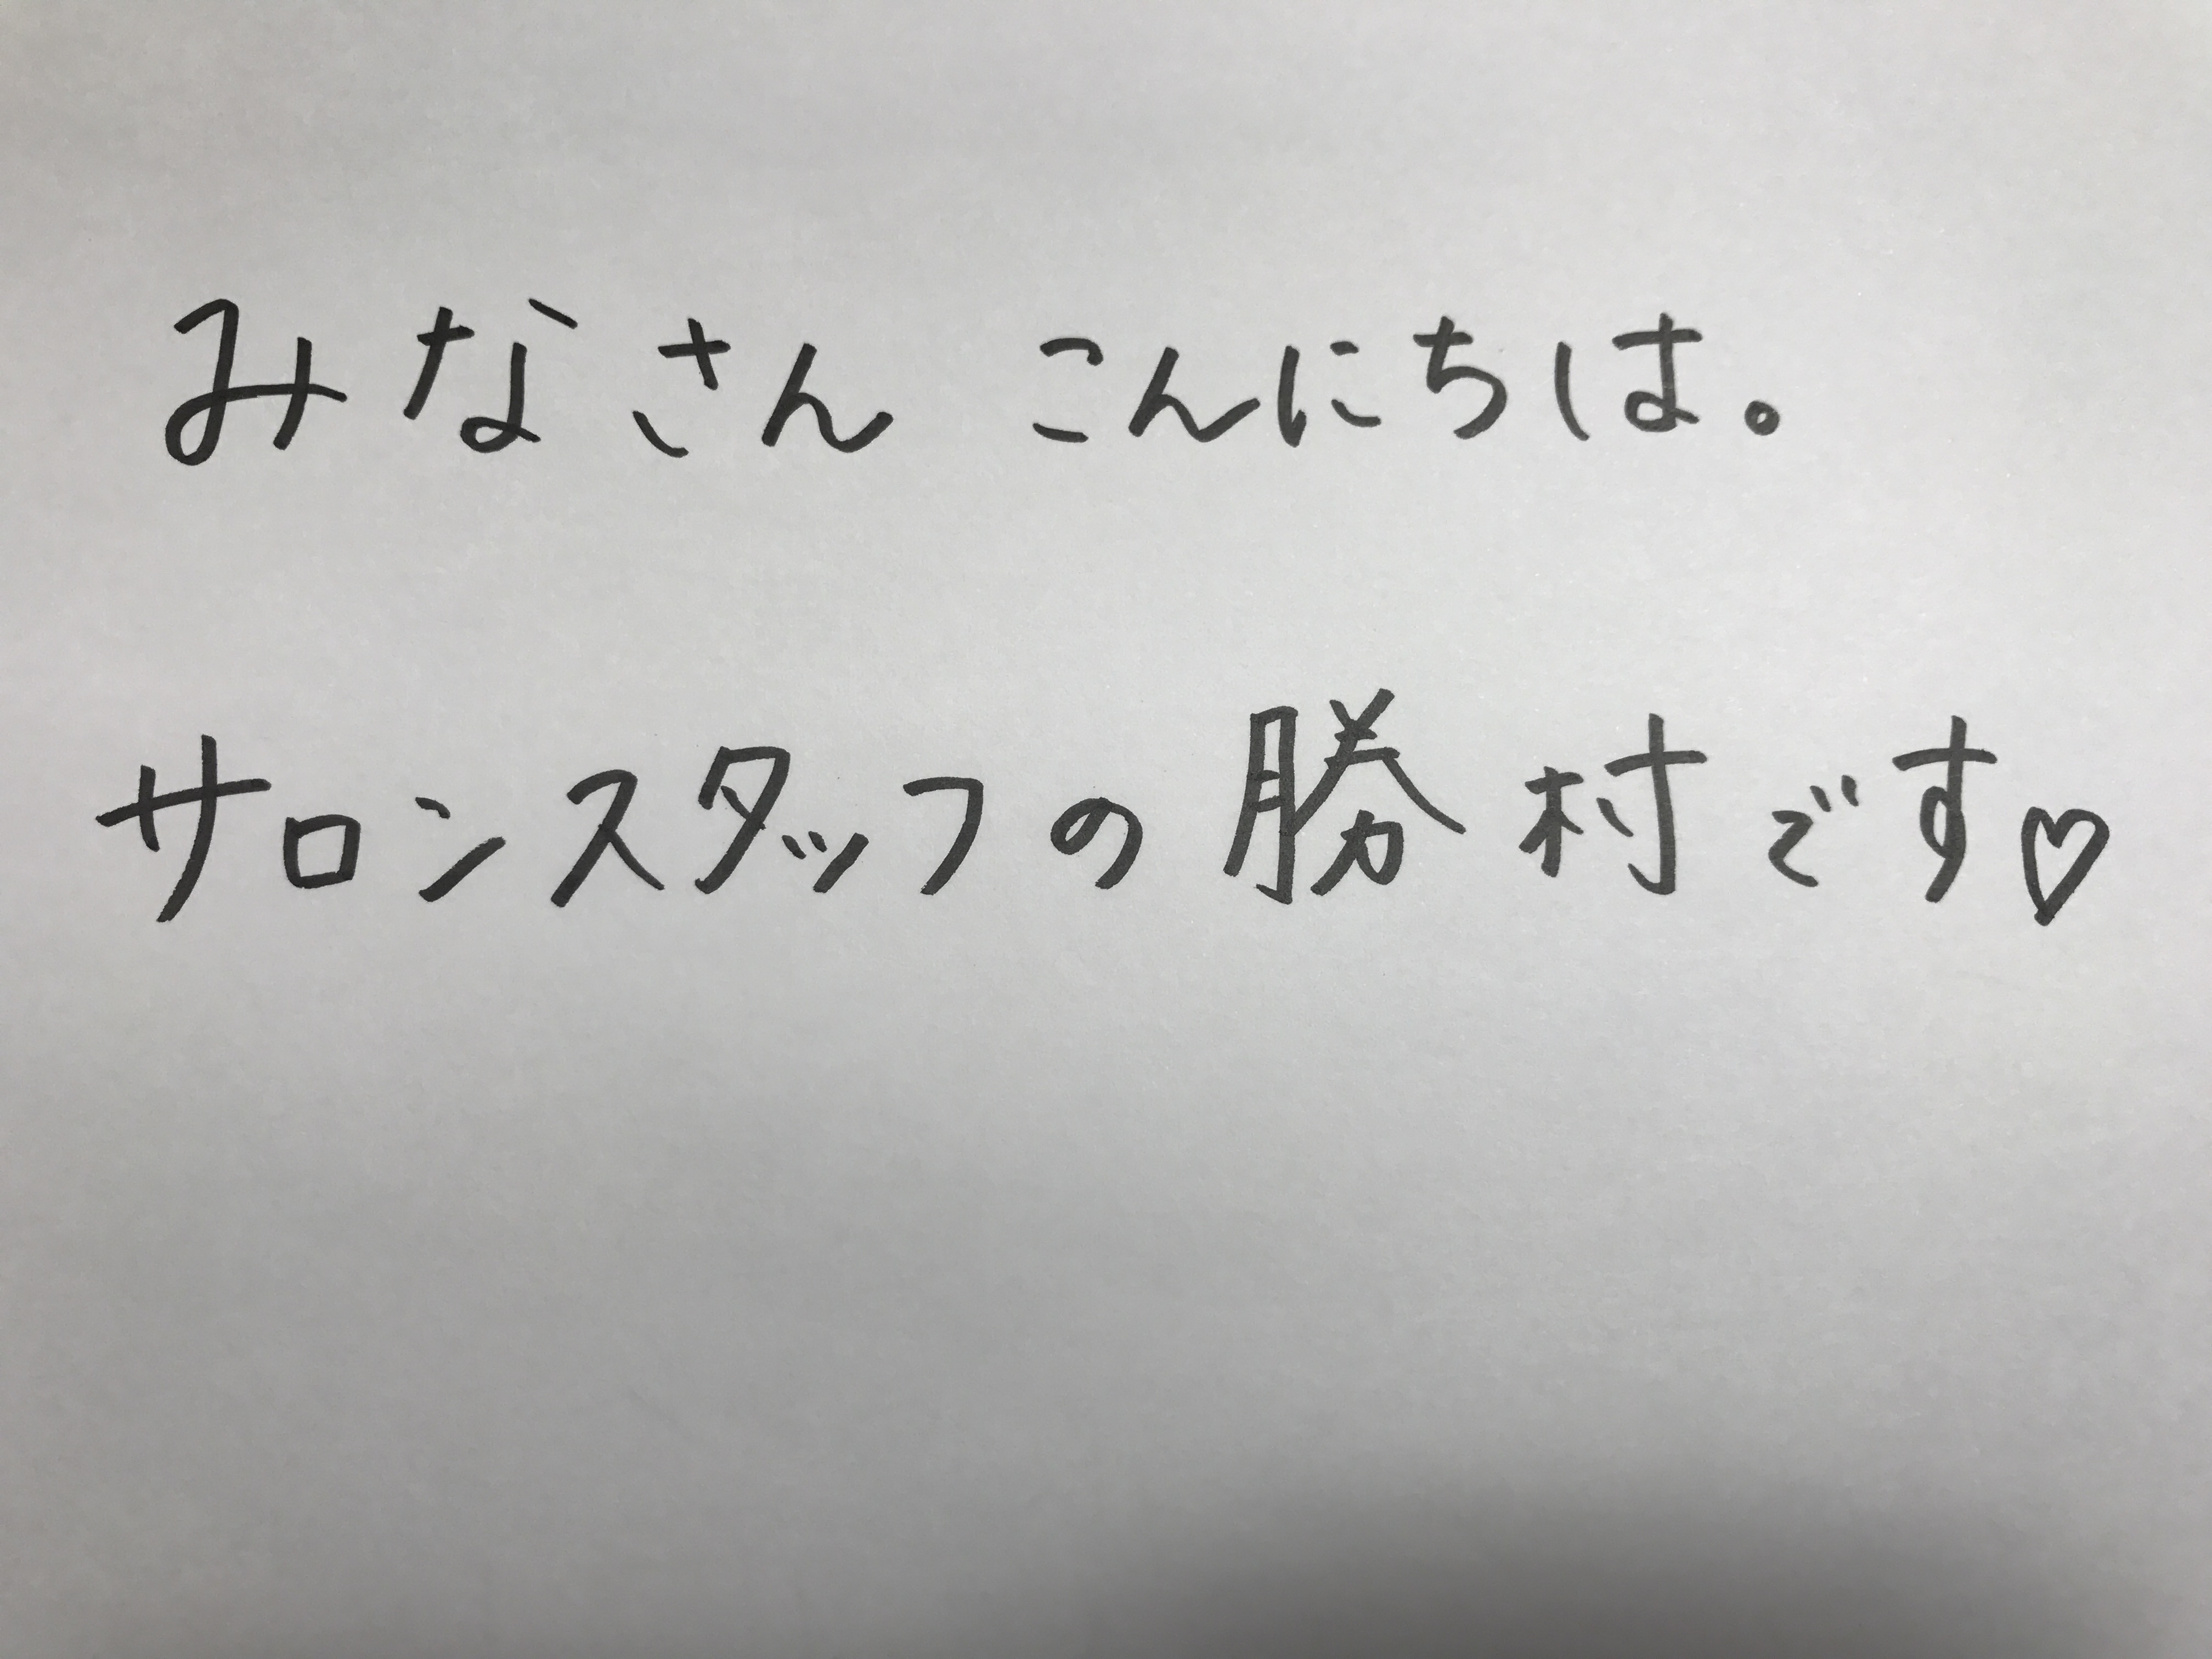 みなさん こんにちは。
サロンスタッフの勝村です♡